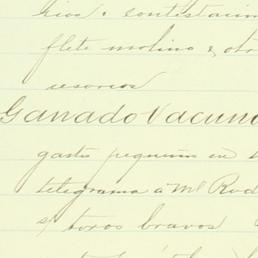 hios. contestacion
flete molino & otro
resorios
Ganado Vacuno
gastos pequeños en
telegrama á Ml Rod
s/ toros bravos